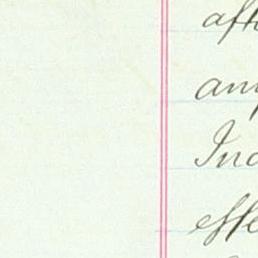 aft
any
Ind
effe